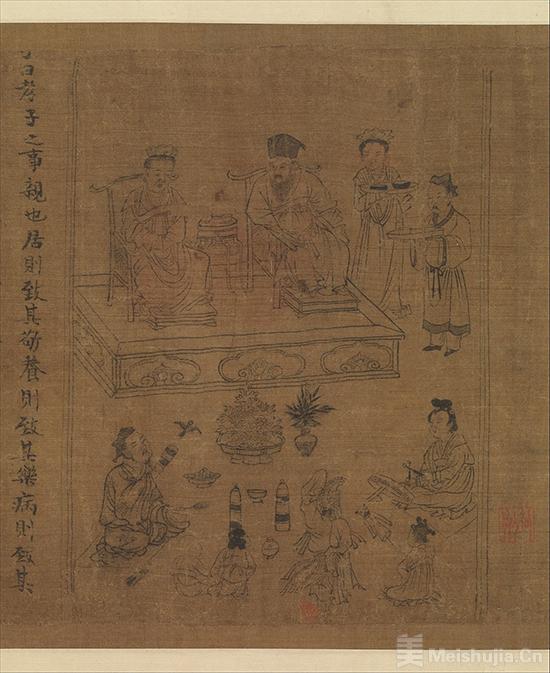 子曰孝子之事親也居則致其敬養則致其樂病則致其
美 Meishujia.Cn